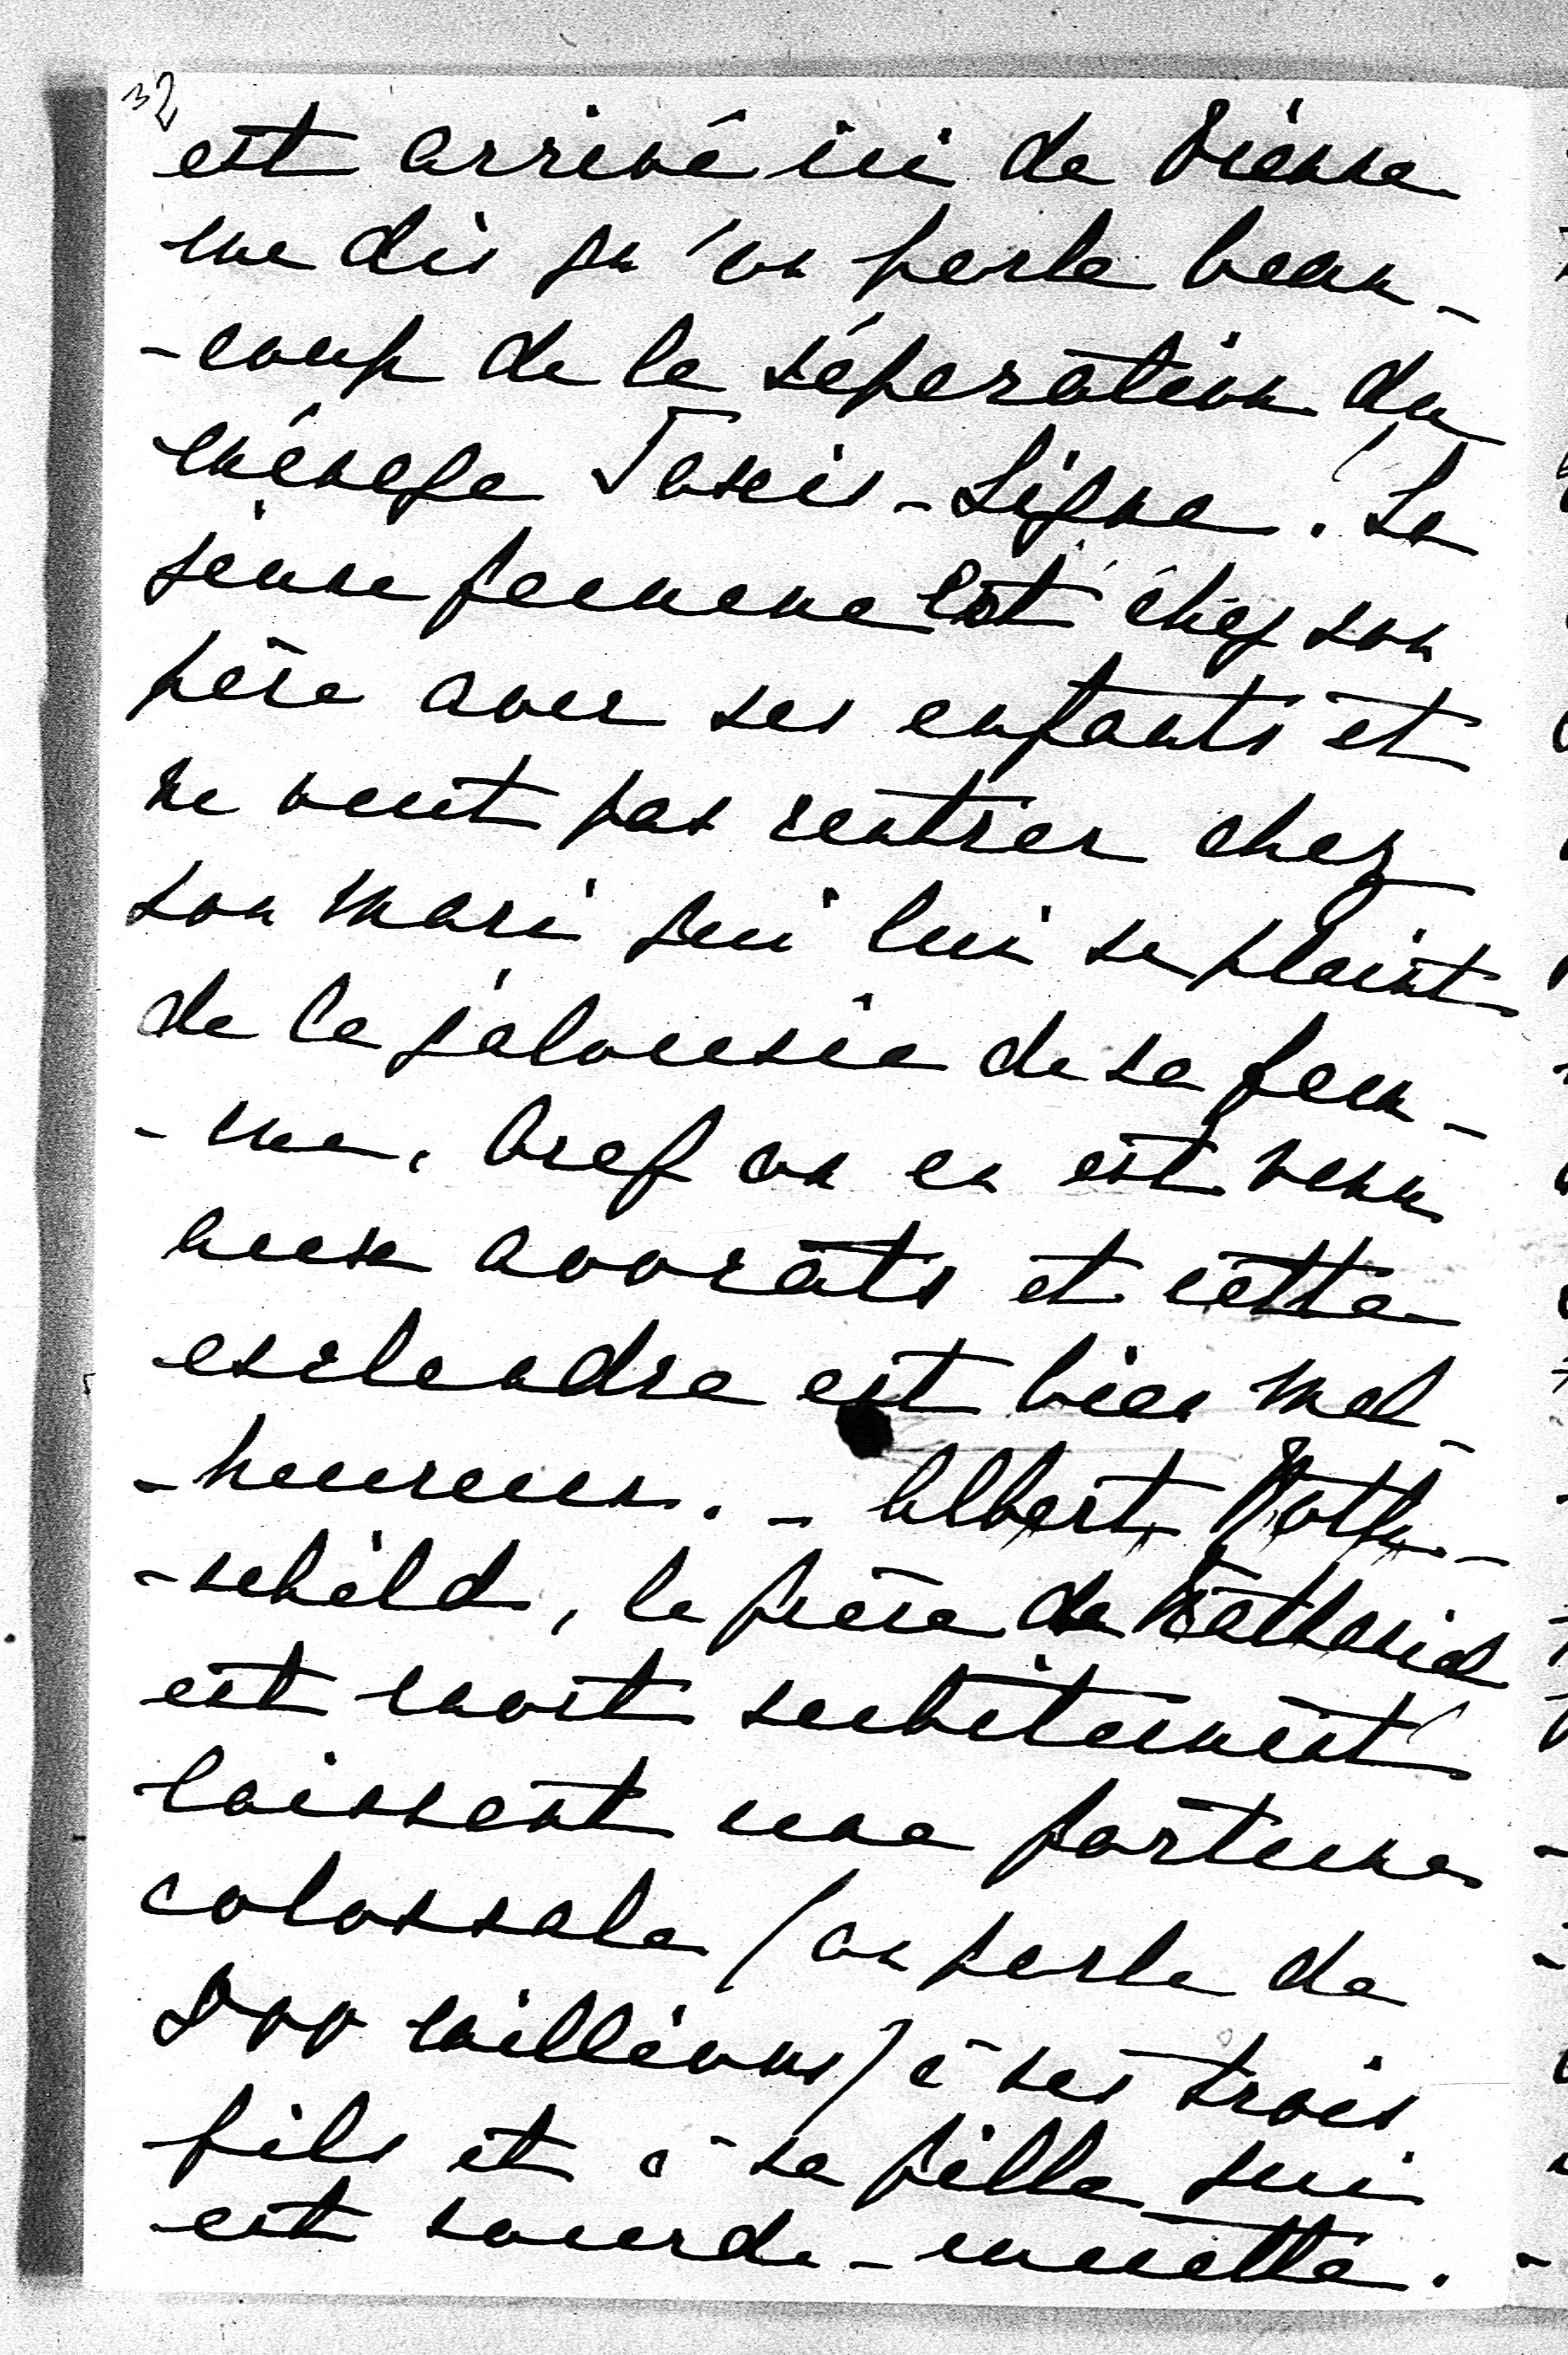 32
est arrivé ici de Vienne
me dis qu'on parle beau-
-coup de la séparation du
ménage Taxis-Ligne. La
jeune femme est chez son
père avec ses enfants et
ne veut pas rentrer chez
son mari qui lui se plaint
de la jalousie de sa fem-
-me, bref on en est venu
aux avocats et cette
esclandre est bien mal-
-heureux. - Albert Roth-
-schild, le frère de Nathaniel
est mort subitement
laissant une fortune
colossale (on parle de
800 millions) à ses trois
fils et à sa fille qui
est sourde-muette.